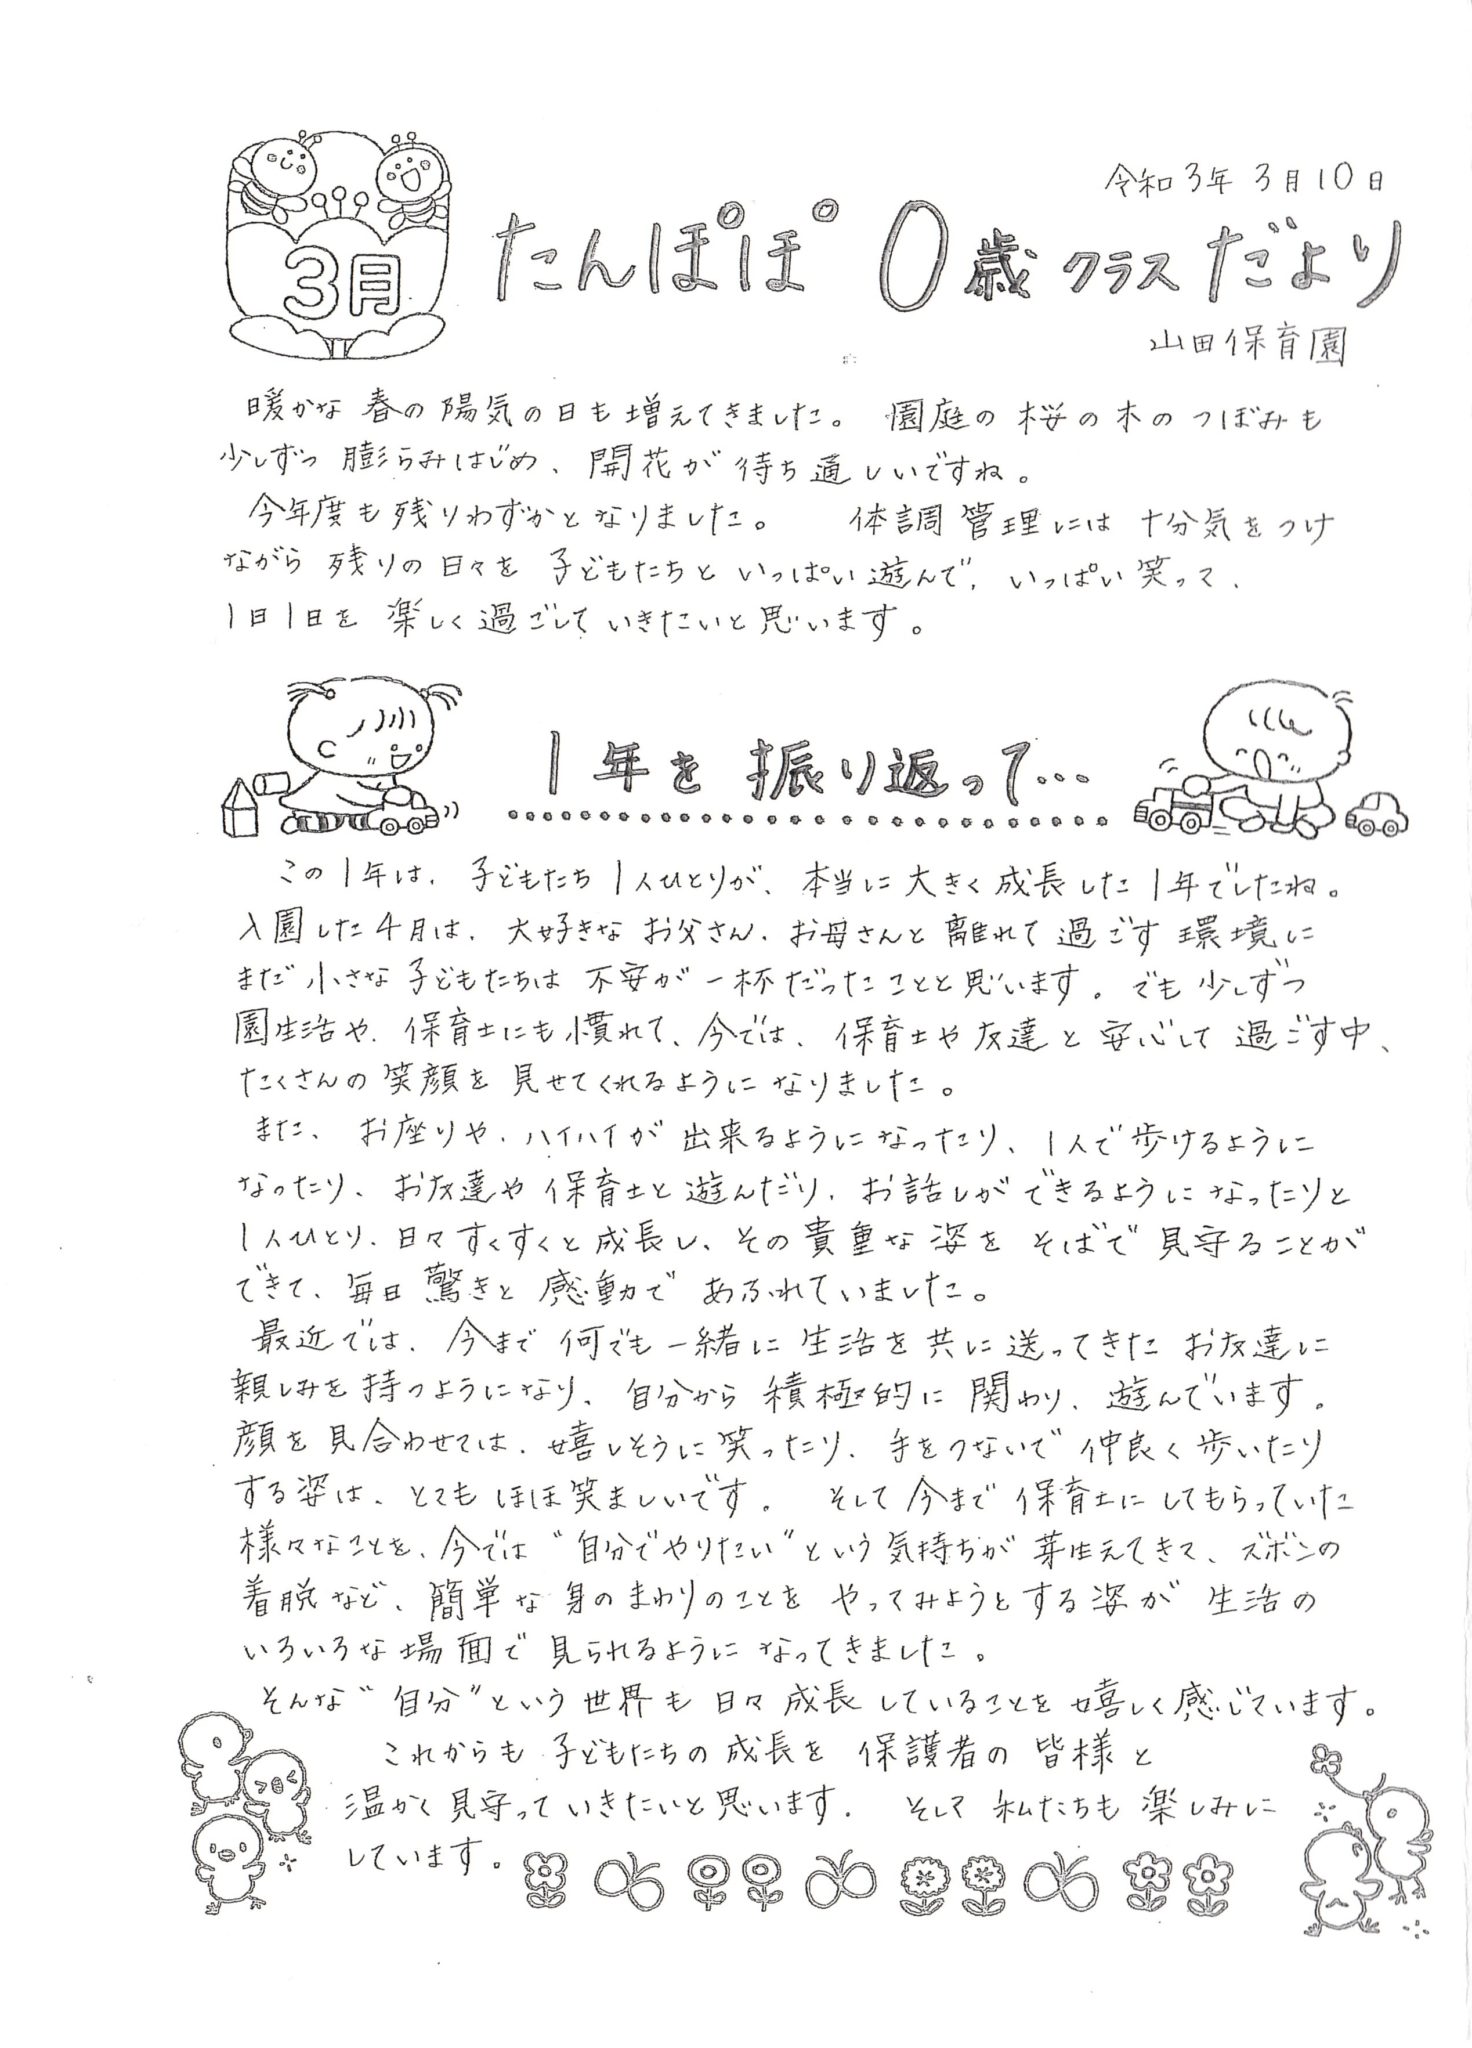 令和3年3月10日
3月
たんぽぽ 0歳クラスだより
山田保育園
暖かな春の陽気の日も増えてきました。園庭の桜の木のつぼみも
少しずつ膨らみはじめ、開花が待ち遠しいですね。
今年度も残りわずかとなりました。 体調管理には十分気をつけ
ながら残りの日々を子どもたちといっぱい遊んで、いっぱい笑って、
1日1日を楽しく過ごしていきたいと思います。
1年を振り返って…
この1年は、子どもたち1人ひとりが、本当に大きく成長した1年でしたね。
入園した4月は、大好きなお父さん、お母さんと離れて過ごす環境に
まだ小さな子どもたちは不安が一杯だったことと思います。でも少しずつ
園生活や、保育士にも慣れて、今では、保育士や友達と安心して過ごす中、
たくさんの笑顔を見せてくれるようになりました。
また、お座りや、ハイハイが出来るようになったり、1人で歩けるように
なったり、お友達や保育士と遊んだり、お話しができるようになったりと
1人ひとり、日々すくすくと成長し、その貴重な姿をそばで見守ることが
できて、毎日驚きと感動であふれていました。
最近では、今まで何でも一緒に生活を共に送ってきたお友達に
親しみを持つようになり、自分から積極的に関わり、遊んでいます。
顔を見合わせては、嬉しそうに笑ったり、手をつないで仲良く歩いたり
する姿は、とてもほほ笑ましいです。 そして今まで保育士にしてもらっていた
様々なことを、今では“自分でやりたい”という気持ちが芽生えてきて、ズボンの
着脱など、簡単な身のまわりのことをやってみようとする姿が生活の
いろいろな場面で見られるようになってきました。
そんな“自分”という世界も日々成長していることを嬉しく感じています。
これからも子どもたちの成長を保護者の皆様と
温かく見守っていきたいと思います。 そして私たちも楽しみに
しています。